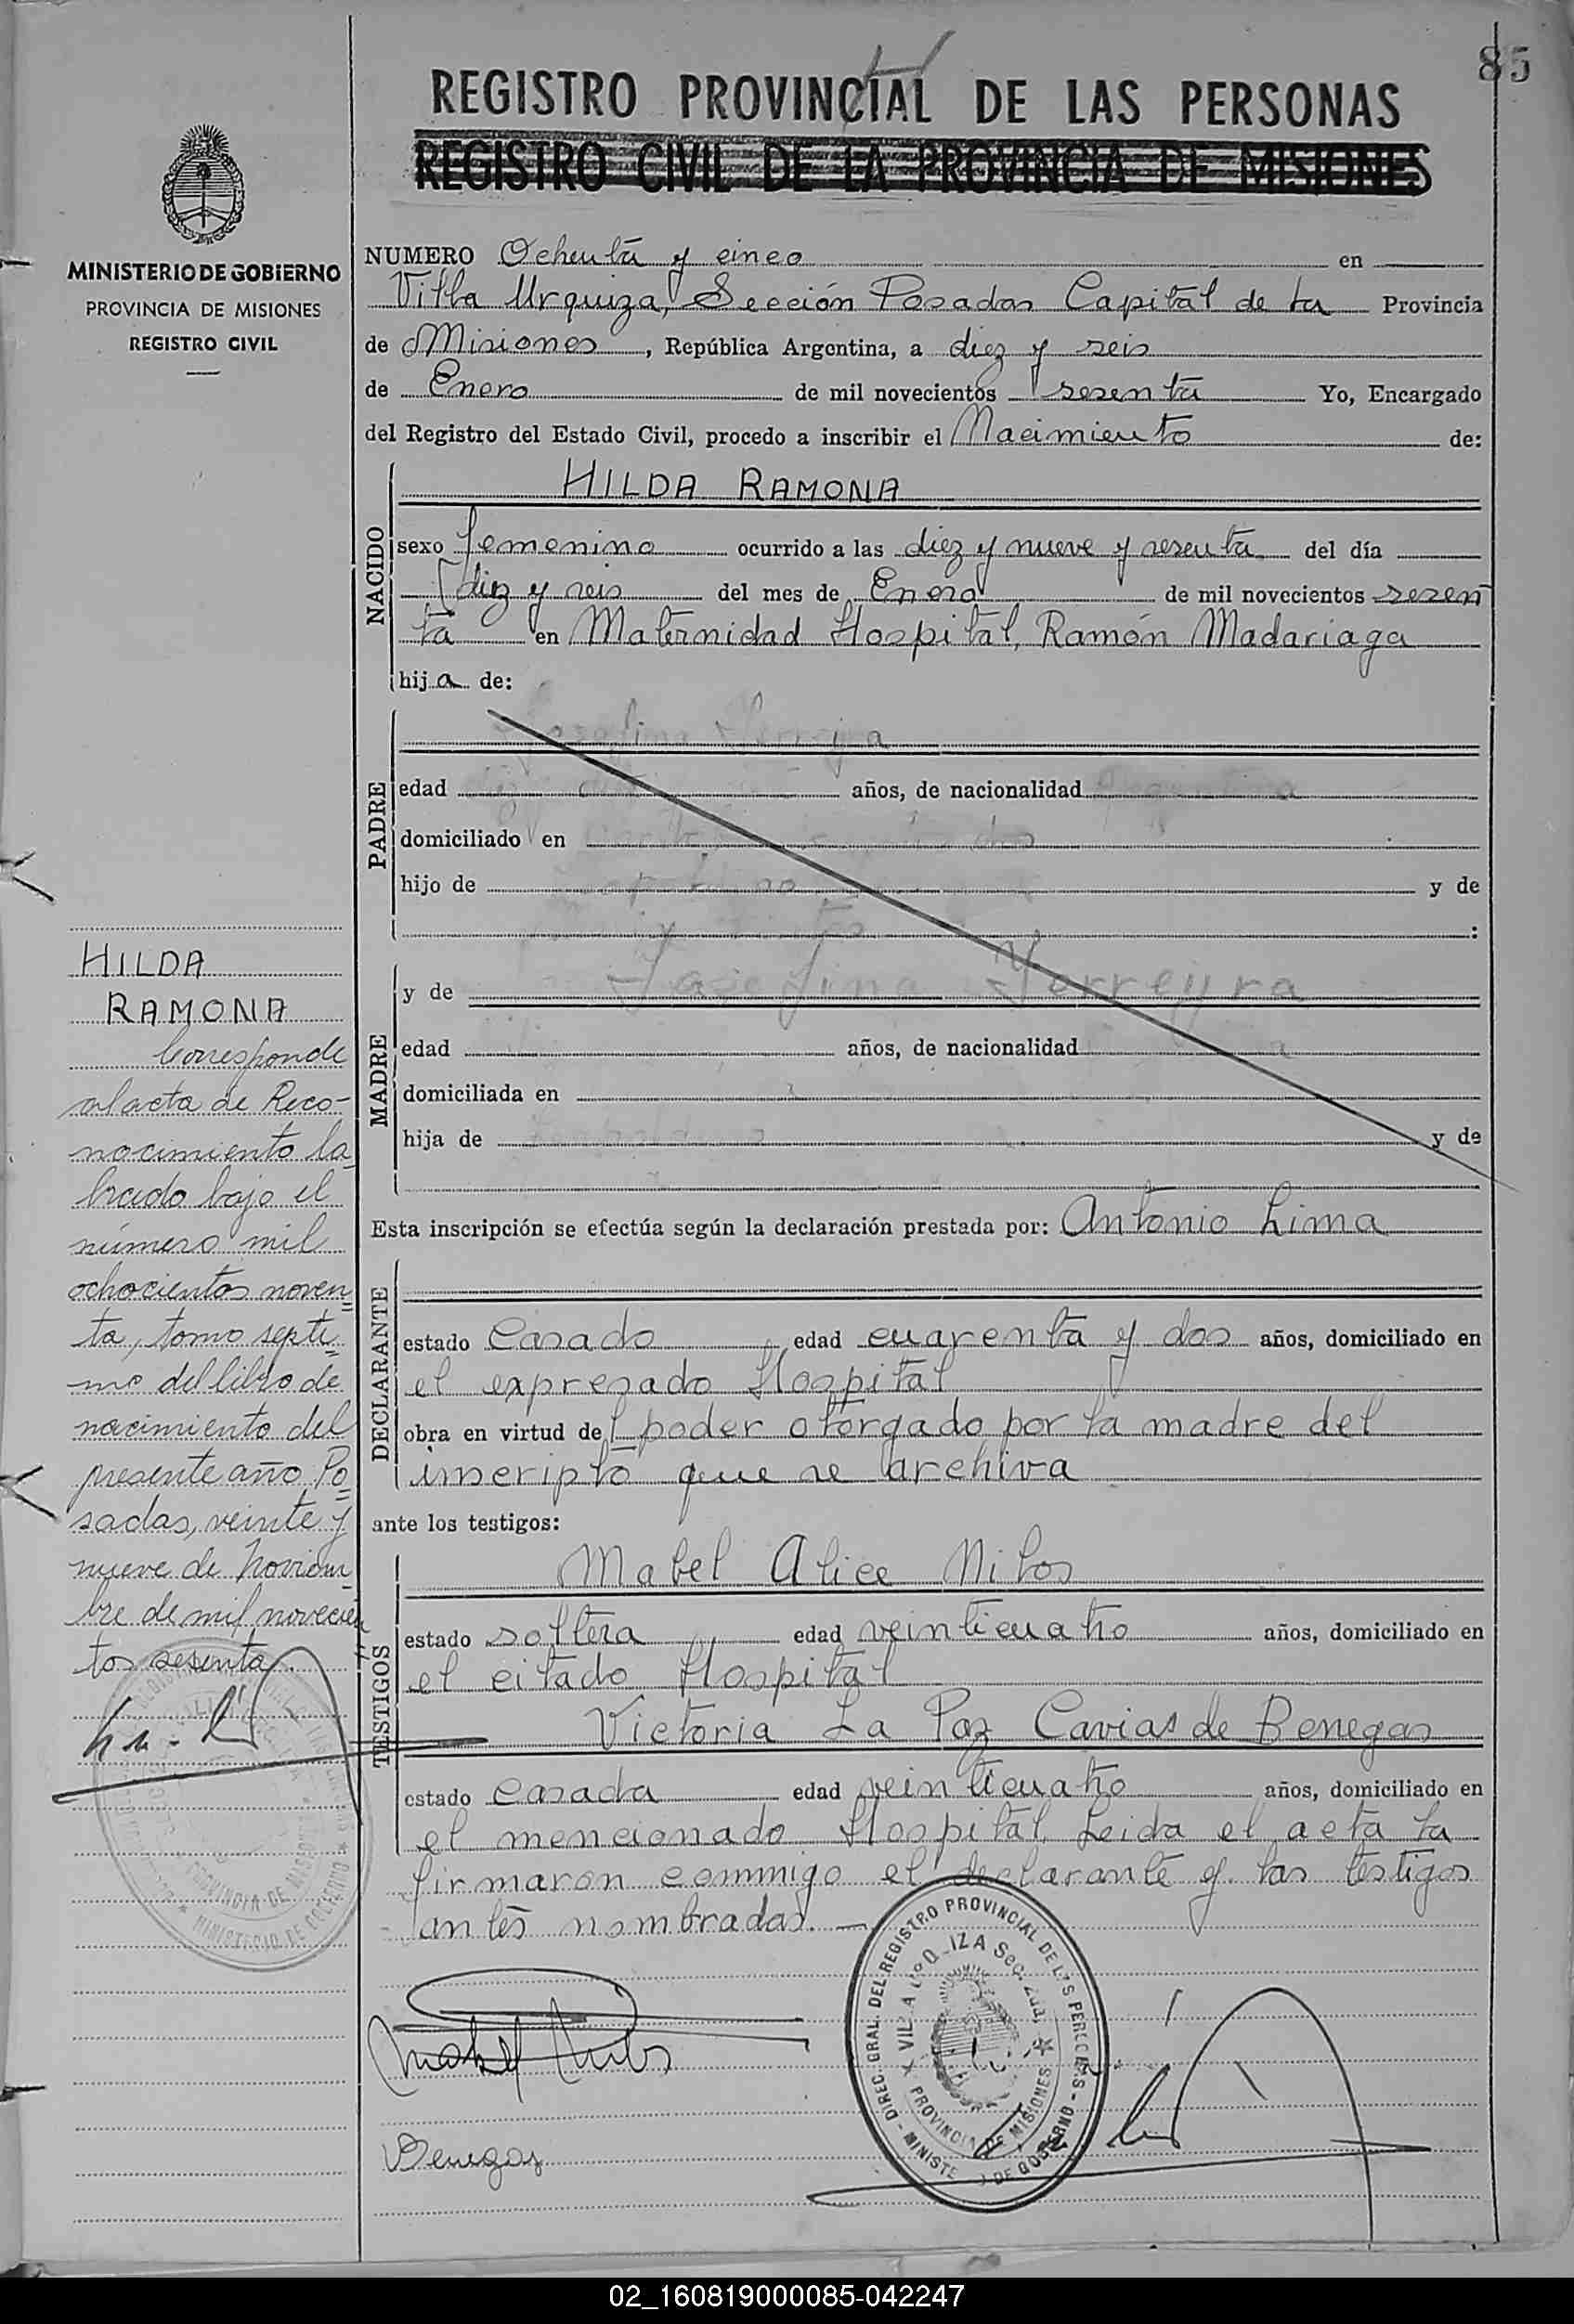 85
REGISTRO PROVINCIAL DE LAS PERSONAS
REGISTRO CIVIL DE LA PROVINCIA DE MISIONES
MINISTERIO DE GOBIERNO
PROVINCIA DE MISIONES
REGISTRO CIVIL
NUMERO Ochenta y cinco en
Villa Urquiza, Sección Posadas Capital de la Provincia
de Misiones, República Argentina, a diez y seis
de Enero de mil novecientos sesenta Yo, Encargado
del Registro del Estado Civil, procedo a inscribir el Nacimiento de:
NACIDO
HILDA RAMONA
sexo femenino ocurrido a las diez y nueve y sesenta del día
diez y seis del mes de Enero de mil novecientos sesen
ta en Maternidad Hospital, Ramón Madariaga
hija de:
PADRE
Josefina Ferreyra
edad años, de nacionalidad
domiciliado en
hijo de y de
:
MADRE
y de Josefina Ferreyra
edad años, de nacionalidad
domiciliada en
hija de y de
Esta inscripción se efectúa según la declaración prestada por: Antonio Lima
DECLARANTE
estado Casado, edad cuarenta y dos años, domiciliado en
el expresado Hospital
obra en virtud del poder otorgado por la madre del
inscripto que se archiva
ante los testigos:
TESTIGOS
Mabel Alice Milos
estado soltera edad veinticuatro años, domiciliado en
el citado Hospital
Victoria La Paz Cavias de Benegas
estado Casada edad veinticuatro años, domiciliado en
el mencionado Hospital. Leida el acta la
firmaron conmigo el declarante y las testigos
antes nombradas.
Benegas
HILDA
RAMONA
Corresponde
al acta de Reco-
nocimiento la
brado bajo el
número mil
ochocientos noven
ta, tomo septi
mo del libro de
nacimiento del
presente año. Po
sadas, veinte y
nueve de Noviem
bre de mil novecien
tos sesenta.
DIREC. GRAL. DEL REGISTRO PROVINCIAL DE LAS PERSONAS
PROVINCIA DE MISIONES
02_160819000085-042247